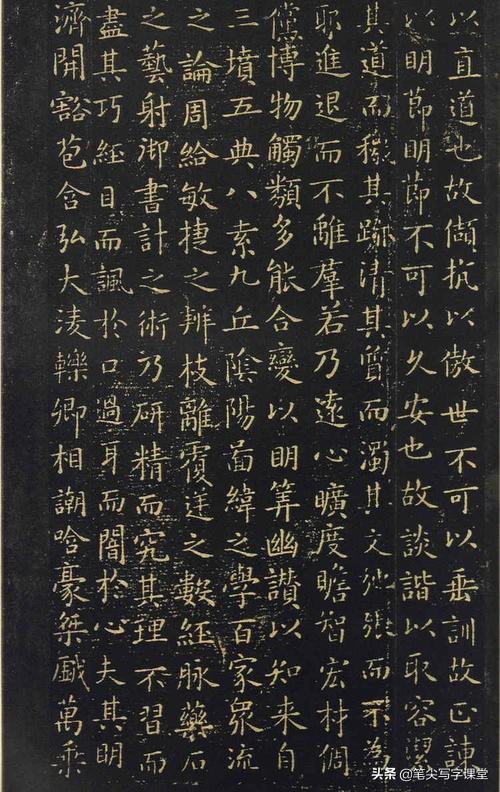 以直道也故頡抗以傲世不可以垂訓故正諫
以明節明節不可以久安也故談諧以取容潔
其道而穢其跡清其質而濁其文弛張而不為
耶進退而不離羣若乃遠心曠度瞻智宏材倜
儻博物觸類多能合變以明筭幽讃以知來自
三墳五典八素九丘陰陽啚緯之學百家衆流
之論周給敏捷之辨枝離覆逆之數經脉藥石
之藝射御書計之術乃研精而究其理不習而
盡其巧經目而諷於口過耳而闇於心夫其明
濟開豁苞含弘大淩轢卿相謿哈豪桀戲萬乗
头条 @笔尖写字课堂